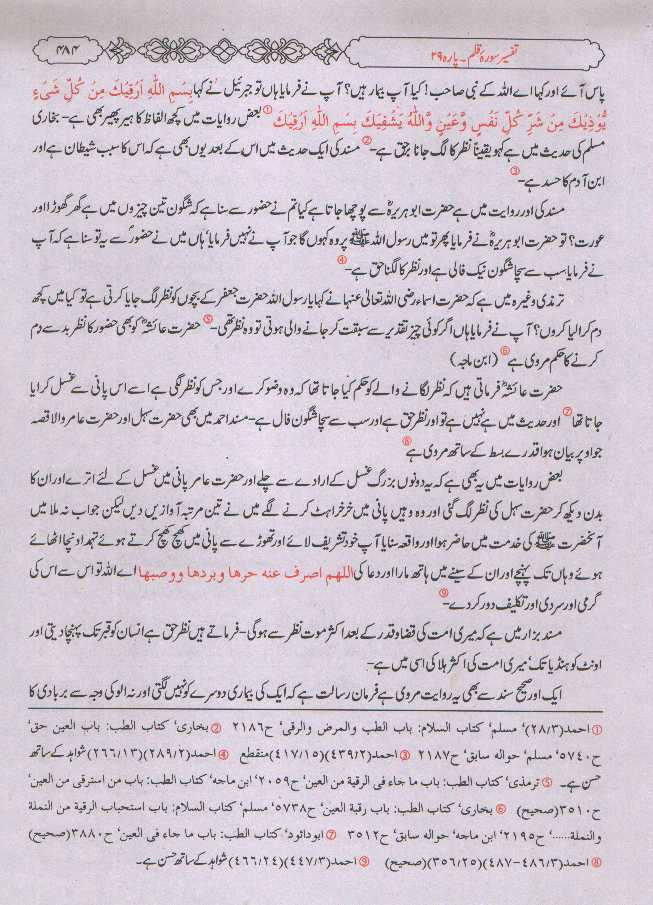 تفسیر سورۂ قلم۔ پارہ ۲۹
۴۸۴
پاس آئے اور کہا اے اللہ کے نبی صاحب! کیا آپ بیمار ہیں؟ آپ نے فرمایا ہاں تو جبرئیلؑ نے کہا بِسْمِ اللّٰهِ اَرْقِيْكَ مِنْ كُلِّ شَىْءٍ
يُّوْذِيْكَ مِنْ شَرِّ كُلِّ نَفْسٍ وَّعَيْنٍ وَّاللّٰهُ يَشْفِيْكَ بِسْمِ اللّٰهِ اَرْقِيْكَ ① بعض روایات میں کچھ الفاظ کا ہیر پھیر بھی ہے - بخاری
مسلم کی حدیث میں ہے کہ یقیناً نظر کا لگ جانا برحق ہے - ② مسند کی ایک حدیث میں اس کے بعد یوں بھی ہے کہ اس کا سبب شیطان ہے اور
ابن آدم کا حسد ہے - ③
مسند کی اور روایت میں ہے حضرت ابو ہریرہؓ سے پوچھا جاتا ہے کیا تم نے حضور سے سنا ہے کہ شگون تین چیزوں میں ہے گھر گھوڑا اور
عورت؟ تو حضرت ابو ہریرہؓ نے فرمایا پھر تو میں رسول اللہ ﷺ پر وہ کہوں گا جو آپ نے نہیں فرمایا' ہاں میں نے حضورؐ سے یہ تو سنا ہے کہ آپ
نے فرمایا سب سے سچا شگون نیک فالی ہے اور نظر کا لگنا حق ہے - ④
ترمذی وغیرہ میں ہے کہ حضرت اسماء رضی اللہ تعالیٰ عنہا نے کہا یا رسول اللہ حضرت جعفر کے بچوں کو نظر لگ جایا کرتی ہے تو کیا میں کچھ
دم کرا لیا کروں؟ آپ نے فرمایا ہاں اگر کوئی چیز تقدیر سے سبقت کر جانے والی ہوتی تو وہ نظر تھی - ⑤ حضرت عائشہؓ کو بھی حضور کا نظر بد سے دم
کرنے کا حکم مروی ہے ⑥ (ابن ماجہ)
حضرت عائشہؓ فرماتی ہیں کہ نظر لگانے والے کو حکم کیا جاتا تھا کہ وہ وضو کرے اور جس کو نظر لگی ہے اسے اس پانی سے غسل کرایا
جاتا تھا ⑦ اور حدیث میں ہے نہیں ہے تو اور نظر حق ہے اور سب سے سچا شگون فال ہے - مسند احمد میں بھی حضرت سہل اور حضرت عامر والا قصہ
جو اوپر بیان ہوا قدرے بسط کے ساتھ مروی ہے ⑧
بعض روایات میں یہ بھی ہے کہ یہ دونوں بزرگ غسل کے ارادے سے چلے اور حضرت عامر پانی میں غسل کے لئے اترے اور ان کا
بدن دیکھ کر حضرت سہل کی نظر لگ گئی اور وہ وہیں پانی میں خرخراہٹ کرنے لگے میں نے تین مرتبہ آوازیں دیں لیکن جواب نہ ملا میں
آنحضرت ﷺ کی خدمت میں حاضر ہوا اور واقعہ سنایا آپ خود تشریف لائے اور تھوڑے سے پانی میں کھچ کھچ کرتے ہوئے تہمد اونچا اٹھائے
ہوئے وہاں تک پہنچے اور ان کے سینے میں ہاتھ مارا اور دعا کی اللهم اصرف عنه حرها وبردها ووصبها اے اللہ تو اس سے اس کی
گرمی اور سردی اور تکلیف دور کر دے - ⑨
مسند بزار میں ہے کہ میری امت کی قضا و قدر کے بعد اکثر موت نظر سے ہو گی - فرماتے ہیں نظر حق ہے انسان کو قبر تک پہنچا دیتی اور
اونٹ کو ہنڈیا تک' میری امت کی اکثر ہلاکی اسی میں ہے -
ایک اور صحیح سند سے بھی یہ روایت مروی ہے فرمان رسالت ہے کہ ایک کی بیماری دوسرے کو نہیں لگتی اور نہ الو کی وجہ سے بربادی کا
① احمد (۲۸/۳)' مسلم' کتاب السلام: باب الطب والمرض والرقی' ح۲۱۸۶ ② بخاری' کتاب الطب: باب العین حق'
ح۵۷۴۰' مسلم' حوالہ سابق' ح۲۱۸۷ ③ احمد (۴۳۹/۲)(۴۱۷/۱۵)منقطع ④ احمد (۲۸۹/۲)(۲۶۶/۱۳) شواہد کے ساتھ
حسن ہے۔ ⑤ ترمذی' کتاب الطب: باب ما جاء فی الرقیة من العین' ح۲۰۵۹' ابن ماجه' کتاب الطب: باب من استرقی من العین'
ح۳۵۱۰(صحیح) ⑥ بخاری' کتاب الطب: باب رقبة العین' ح۵۷۳۸' مسلم' کتاب السلام: باب استحباب الرقیة من النملة
والنملة......' ح۲۱۹۵' ابن ماجه' حوالہ سابق' ح۳۵۱۲ ⑦ ابودائود' کتاب الطب: باب ما جاء فی العین' ح۳۸۸۰(صحیح)
⑧ احمد (۴۸۶/۳-۴۸۷)(۳۵۶/۲۵)(صحیح) ⑨ احمد (۴۴۷/۳)(۴۶۶/۲۴) شواہد کے ساتھ حسن ہے۔